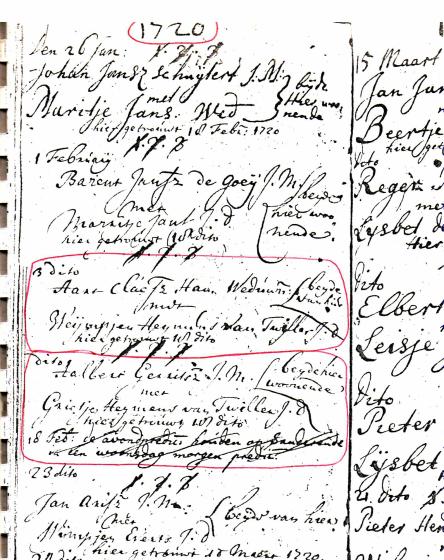 1720
Den 26 Jan:
Johan Jansz Schuylert J.M. } beijde
met hier woo
Maritje Jans. Wed nende
hier getrouwt 18 Febr. 1720
1 Februarij
Barent Jansz de Goeij J.M. beyde
met hier woo
Marritje Jans J.d. nende
hier getrouwt 18 dito
3 dito
Aart Claesz Haan Weduwn: beyde
met
Weijmpjen Heymens van Twiller J.d
hier getrouwt 18 dito
dito
Aalbert Gerritsz J.M. beyde hier
met woonende
Grietje Heymens van Twiller J.d
hier getrouwt 18 dito
18 Feb:
woensdag morgen predic:
23 dito
Jan Arisz J.M. beyde van hier
met
Wimpjen Gerrits J.d
hier getrouwt 18 Maert 1720
15 Maart
Jan Jan
Beertje
hier get
dito
Reger
me
Lysbet de
Hier
dito
Elbert
Leisje
Dito
Pieter
Lysbet
4 dito
Pieter Hen